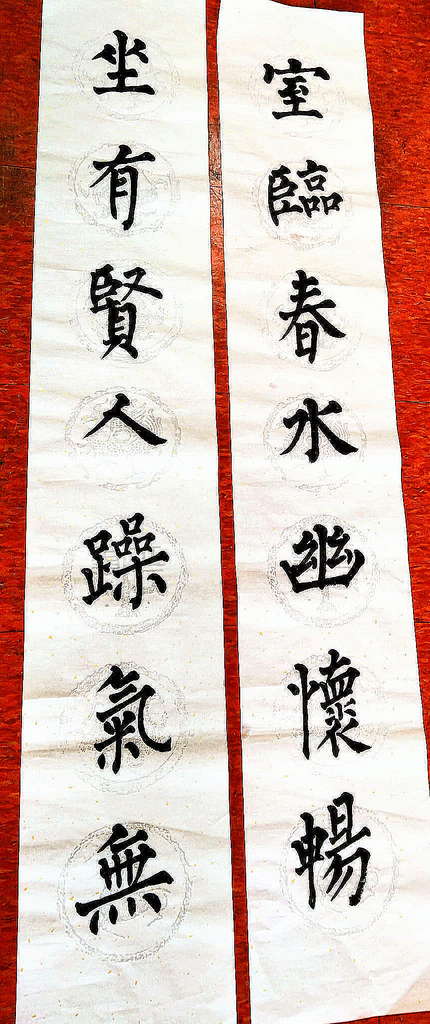 室臨春水幽懷暢
坐有賢人躁氣無